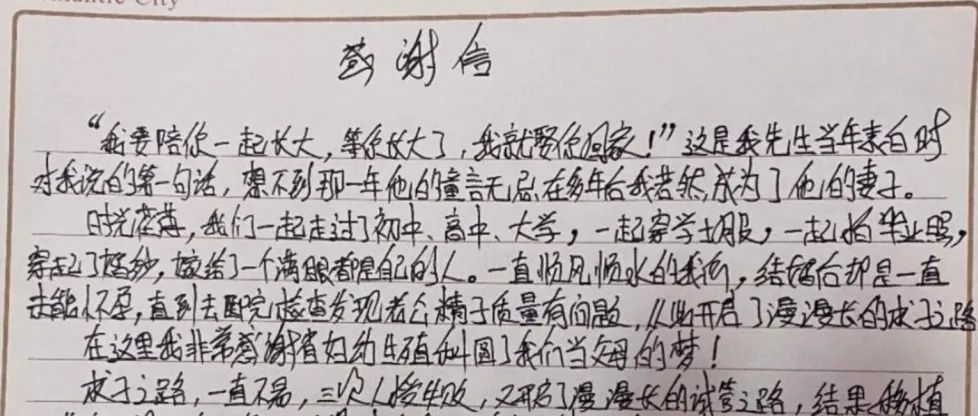 感谢信
“我要陪你一起长大，等你长大了，我就娶你回家！”这是我先生当年表白时
对我说的第一句话，想不到那一年他的童言无忌在多年后我若然成为了他的妻子。
时光荏苒，我们一起走过了初中、高中、大学，一起穿学士服，一起拍毕业照，
穿起了婚纱，嫁给了一个满眼都是自己的人。一直顺风顺水的我们，结婚后却是一直
未能怀孕，直到去医院检查发现老公精子质量有问题，从此开启了漫漫长的求子之路
在这里我非常感谢省妇幼生殖科圆了我们当父母的梦！
求子之路，一直不易，三次人授失败，又开启了漫漫长的试管之路，结果移植